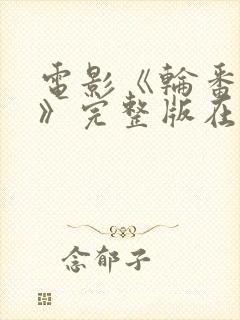 電影《輪番
》完整版在
念郁子